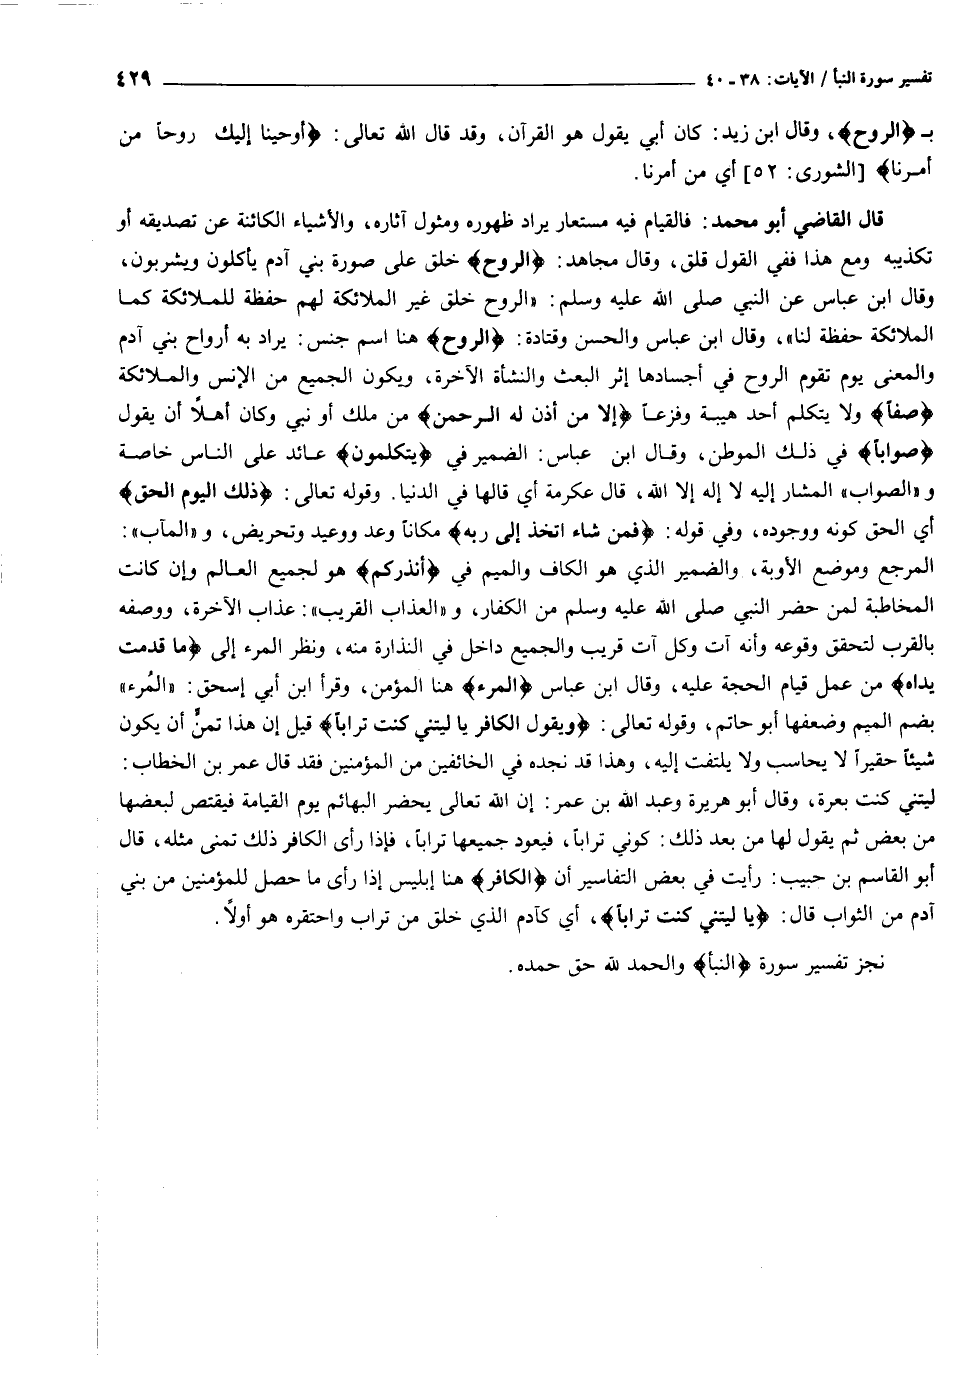 تفسير سورة النبأ / الآيات: ٣٨ - ٤٠ ٤٢٩
بـ ﴿الروح﴾، وقال ابن زيد: كان أبي يقول هو القرآن، وقد قال الله تعالى: ﴿أوحينا إليك روحاً من
أمرنا﴾ [الشورى: ٥٢] أي من أمرنا.
قال القاضي أبو محمد: فالقيام فيه مستعار يراد ظهوره ومثول آثاره، والأشياء الكائنة عن تصديقه أو
تكذيبه ومع هذا ففي القول قلق، وقال مجاهد: ﴿الروح﴾ خلق على صورة بني آدم يأكلون ويشربون،
وقال ابن عباس عن النبي صلى الله عليه وسلم: «الروح خلق غير الملائكة لهم حفظة للملائكة كما
الملائكة حفظة لنا»، وقال ابن عباس والحسن وقتادة: ﴿الروح﴾ هنا اسم جنس: يراد به أرواح بني آدم
والمعنى يوم تقوم الروح في أجسادها إثر البعث والنشأة الآخرة، ويكون الجميع من الإنس والملائكة
﴿صفاً﴾ ولا يتكلم أحد هيبة وفزعاً ﴿إلا من أذن له الرحمن﴾ من ملك أو نبي وكان أهلاً أن يقول
﴿صواباً﴾ في ذلك الموطن، وقال ابن عباس: الضمير في ﴿يتكلمون﴾ عائد على الناس خاصة
و «الصواب» المشار إليه لا إله إلا الله، قال عكرمة أي قالها في الدنيا. وقوله تعالى: ﴿ذلك اليوم الحق﴾
أي الحق كونه ووجوده، وفي قوله: ﴿فمن شاء اتخذ إلى ربه﴾ مكاناً وعد ووعيد وتحريض، و «المآب»:
المرجع وموضع الأوبة، والضمير الذي هو الكاف والميم في ﴿أنذركم﴾ هو لجميع العالم وإن كانت
المخاطبة لمن حضر النبي صلى الله عليه وسلم من الكفار، و «العذاب القريب»: عذاب الآخرة، ووصفه
بالقرب لتحقق وقوعه وأنه آت وكل آت قريب والجميع داخل في النذارة منه، ونظر المرء إلى ﴿ما قدمت
يداه﴾ من عمل قيام الحجة عليه، وقال ابن عباس ﴿المرء﴾ هنا المؤمن، وقرأ ابن أبي إسحق: «المُرء»
بضم الميم وضعفها أبو حاتم، وقوله تعالى: ﴿ويقول الكافر يا ليتني كنت تراباً﴾ قيل إن هذا تمنٍّ أن يكون
شيئاً حقيراً لا يحاسب ولا يلتفت إليه، وهذا قد نجده في الخائفين من المؤمنين فقد قال عمر بن الخطاب:
ليتني كنت بعرة، وقال أبو هريرة وعبد الله بن عمر: إن الله تعالى يحضر البهائم يوم القيامة فيقتص لبعضها
من بعض ثم يقول لها من بعد ذلك: كوني تراباً، فيعود جميعها تراباً، فإذا رأى الكافر ذلك تمنى مثله، قال
أبو القاسم بن حبيب: رأيت في بعض التفاسير أن ﴿الكافر﴾ هنا إبليس إذا رأى ما حصل للمؤمنين من بني
آدم من الثواب قال: ﴿يا ليتني كنت تراباً﴾، أي كآدم الذي خلق من تراب واحتقره هو أولاً.
نجز تفسير سورة ﴿النبأ﴾ والحمد لله حق حمده.